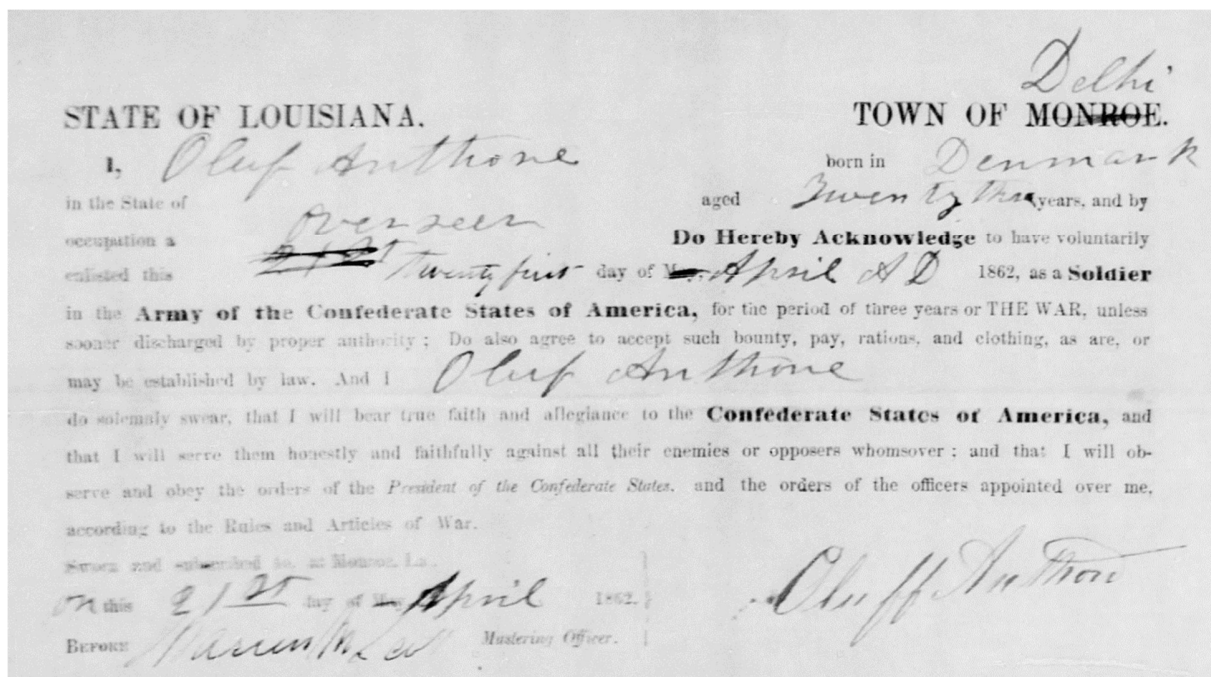 Delhi
STATE OF LOUISIANA. TOWN OF MONROE.
I, Oluf Anthone born in Denmark
in the State of aged Twenty three years, and by
occupation a Overseer Do Hereby Acknowledge to have voluntarily
enlisted this 21st twenty first day of May, April A D 1862, as a Soldier
in the Army of the Confederate States of America, for the period of three years or THE WAR, unless
sooner discharged by proper authority; Do also agree to accept such bounty, pay, rations, and clothing, as are, or
may be established by law. And I Oluf Anthone
do solemnly swear, that I will bear true faith and allegiance to the Confederate States of America, and
that I will serve them honestly and faithfully against all their enemies or opposers whomsover; and that I will ob-
serve and obey the orders of the President of the Confederate States. and the orders of the officers appointed over me,
according to the Rules and Articles of War.
Sworn and subscribed to, at Monroe, La.
on this 21st day of May April 1862.
Oluff Anthon
BEFORE Mastering Officer.